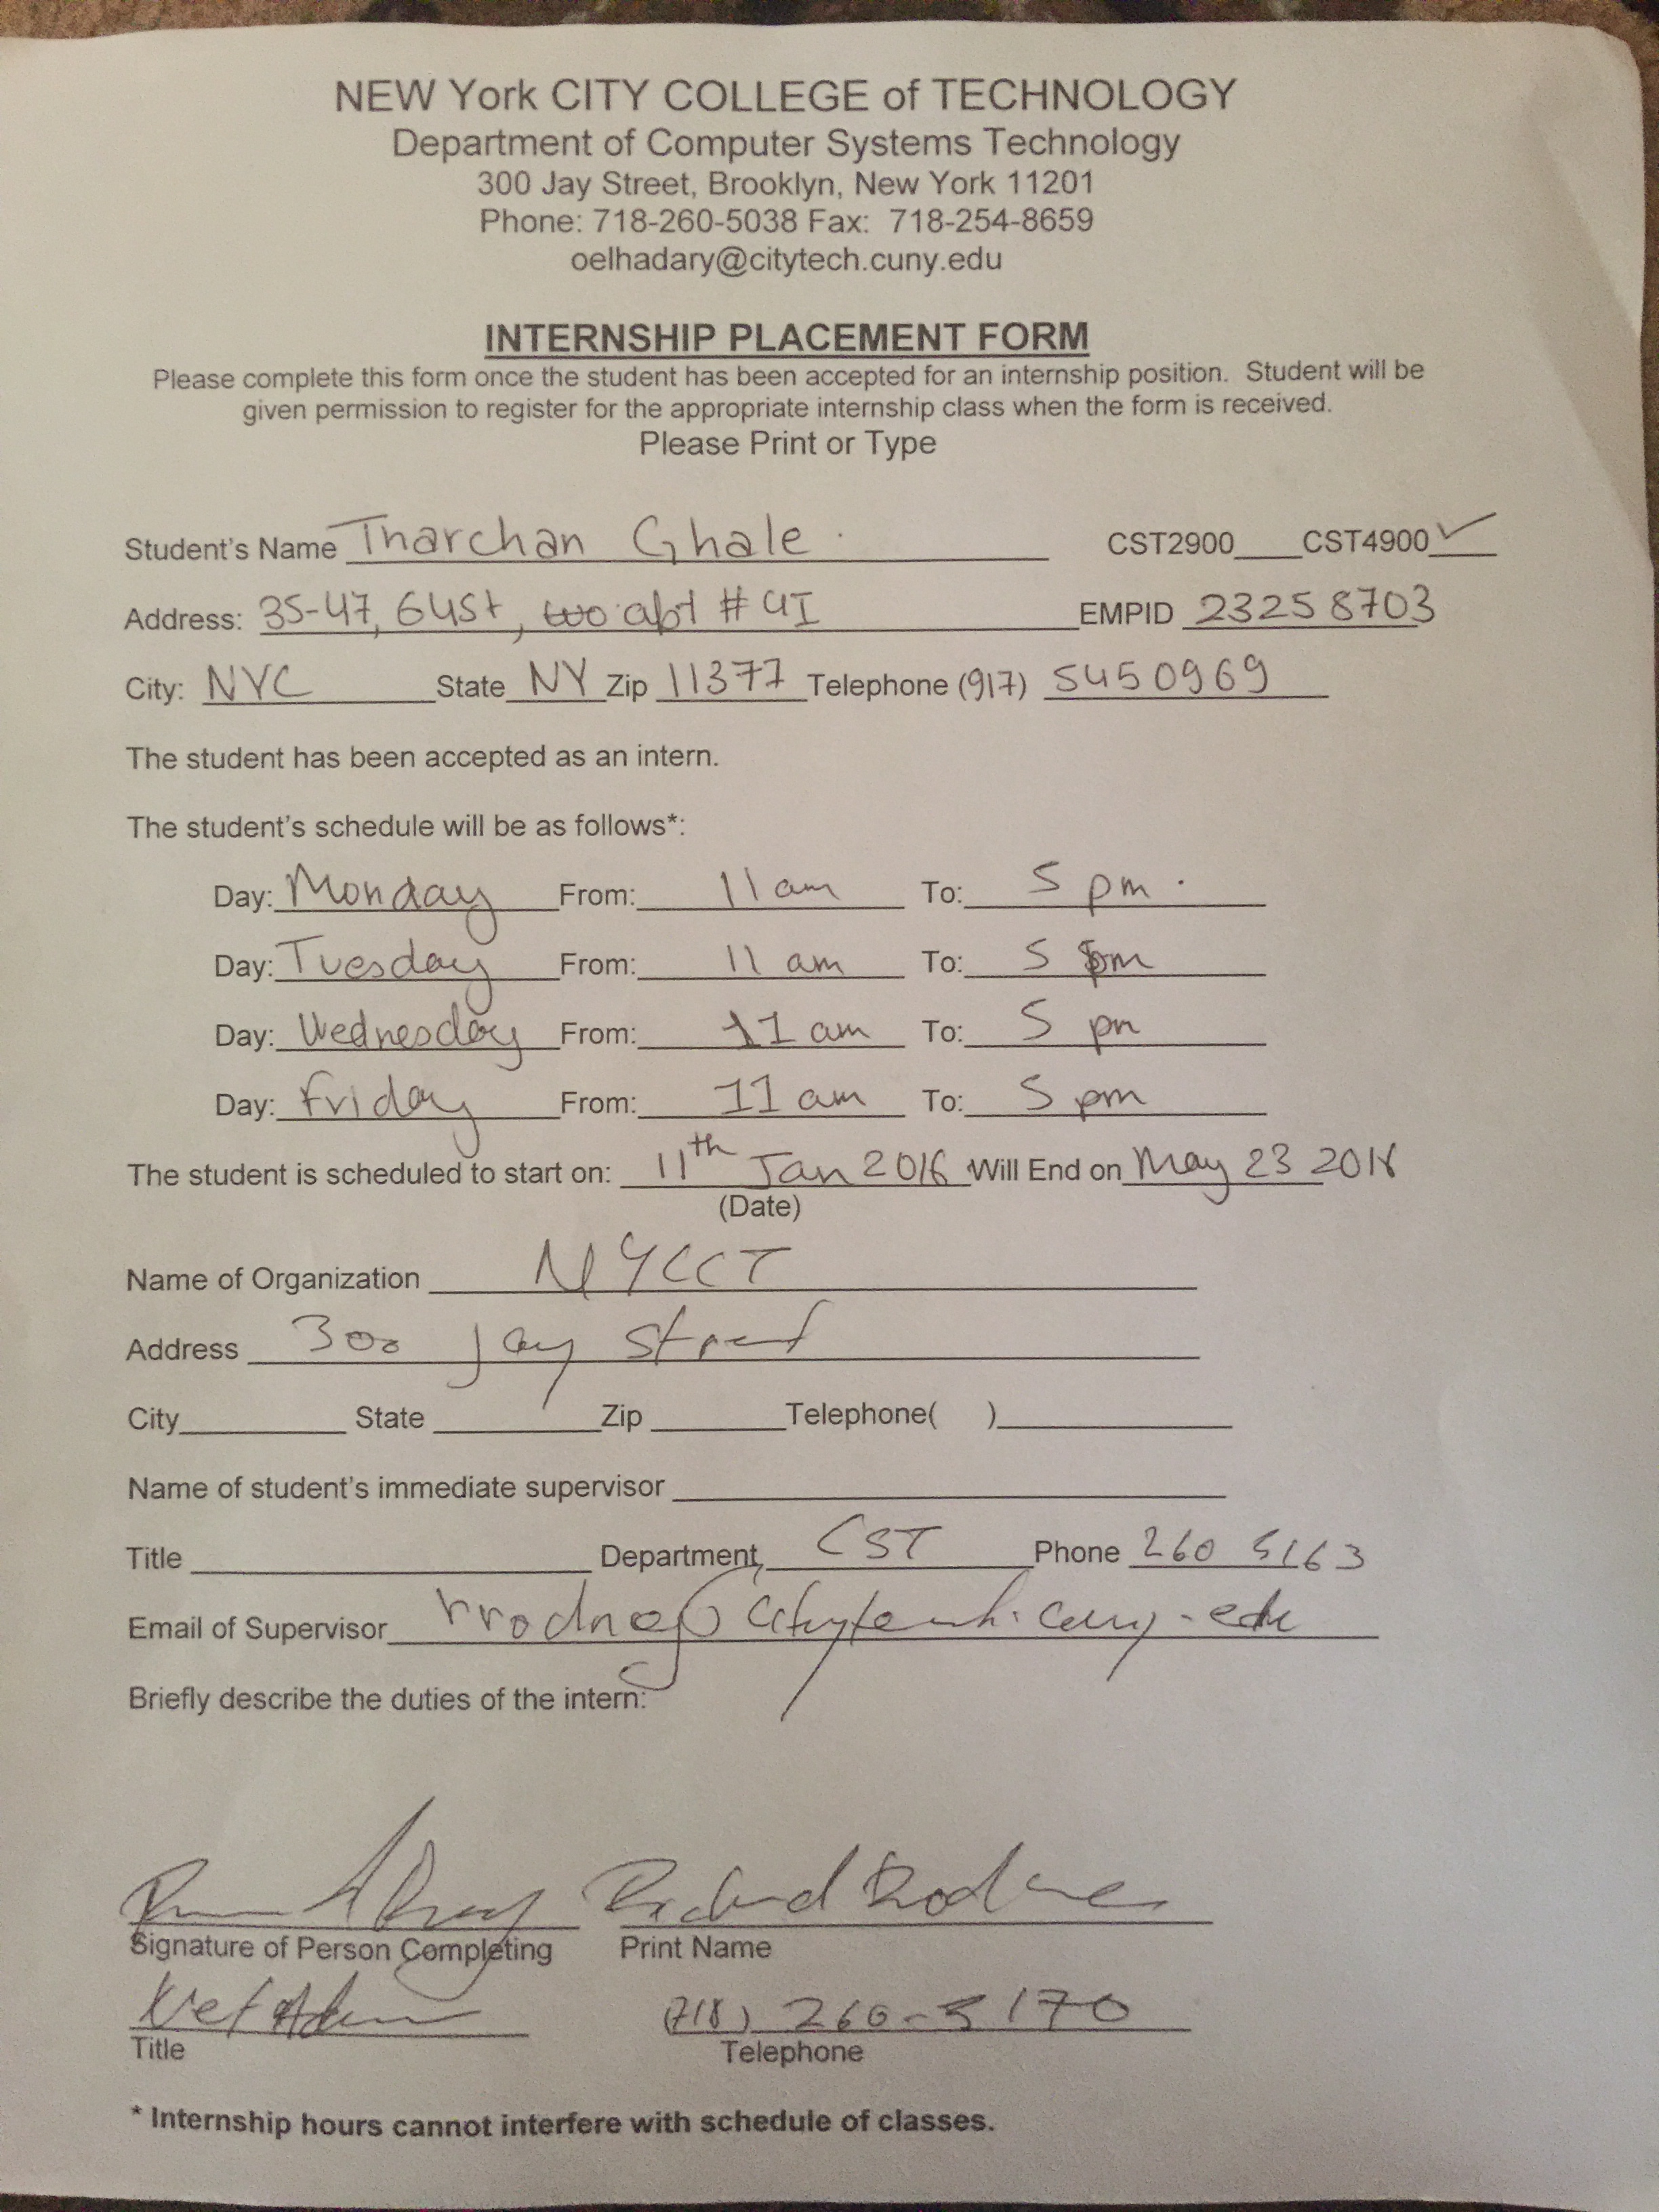 NEW York CITY COLLEGE of TECHNOLOGY
Department of Computer Systems Technology
300 Jay Street, Brooklyn, New York 11201
Phone: 718-260-5038 Fax: 718-254-8659
oelhadary@citytech.cuny.edu
INTERNSHIP PLACEMENT FORM
Please complete this form once the student has been accepted for an internship position. Student will be
given permission to register for the appropriate internship class when the form is received.
Please Print or Type
Student's Name Tharchan Ghale CST2900____CST4900 ✓
Address: 35-47, 64st, apt # 4I EMPID 23258703
City: NYC State NY Zip 11377 Telephone (917) 5450969
The student has been accepted as an intern.
The student's schedule will be as follows*:
Day: Monday From: 11 am To: 5 pm.
Day: Tuesday From: 11 am To: 5 pm
Day: Wednesday From: 11 am To: 5 pm
Day: Friday From: 11 am To: 5 pm
The student is scheduled to start on: 11th Jan 2016 Will End on May 23
(Date)
Name of Organization NYCCT
Address 300 Jay Street
City State Zip Telephone( )
Name of student's immediate supervisor
Title Department CST Phone 260 5163
Email of Supervisor
Briefly describe the duties of the intern:
Richard
Signature of Person Completing Print Name
Net (718) 260-5170
Title Telephone
* Internship hours cannot interfere with schedule of classes.